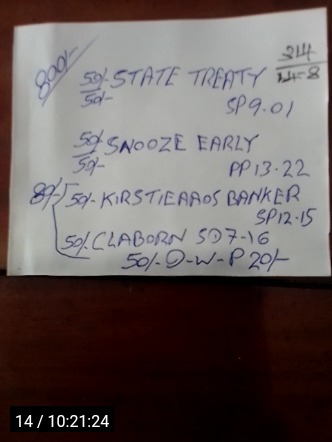 800/-
314
14-8
50/- STATE TREATY
50/-
SP9.01
50/- SNOOZE EARLY
50/-
PP13.22
80/- 50/- KIRSTIEAAOS BANKER
SP12.15
50/- CLABORN SD7-16
50/- D-W-P 20/-
14 / 10:21:24